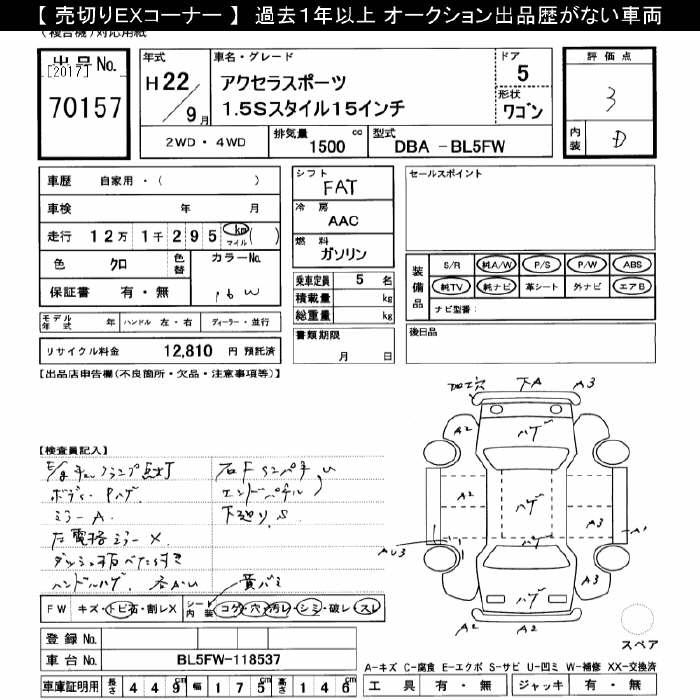 【 売切りEXコーナー 】 過去１年以上 オークション出品歴がない車両
(複合機)対応用紙
出品 No.
[2017]
70157
年式
H 22 / 9月
車名・グレード
アクセラスポーツ
1.5Sスタイル15インチ
ドア
5
形状
ワゴン
2WD ・ 4WD
排気量
1500 cc
型式
DBA －BL5FW
評価点
3
内装
D
車歴 自家用・( )
車検 年 月
走行 12万 1千 2 9 5 km マイル ( )
色 クロ 色替 カラーNo.
16W
保証書 有・無
モデル年式 年 ハンドル 左・右 ディーラー・並行
リサイクル料金 12,810 円 預託済
シフト
FAT
冷房
AAC
燃料
ガソリン
乗車定員 5 名
積載量 kg
総重量 kg
書類期限
月 日
セールスポイント
装備品
S/R 純A/W P/S P/W ABS
純TV 純ナビ 革シート 外ナビ エアB
ナビ型番：
後日品
【出品店申告欄(不良箇所・欠品・注意事項等)】
【検査員記入】
ボディ・Pハゲ
ミラーA.
右電格ミラーX.
下廻り.S
ハンドルハゲ.
黄バミ
FW キズ・トビ石・割レX
シート内装 コゲ・穴・汚レ・シミ・破レ・スレ
登録 No.
車台 No. BL5FW-118537
車庫証明用 長さ 4 4 9 cm 幅 1 7 5 cm 高さ 1 4 6 cm
加工穴 下A A3
A2 A3
ハゲ
A2
A2 ハゲ A3
A1
AU3
ハゲ
A2
スペア
A-キズ C-腐食 E-エクボ S-サビ U-凹ミ W-補修 XX-交換済
工具 有・無 ジャッキ 有・無